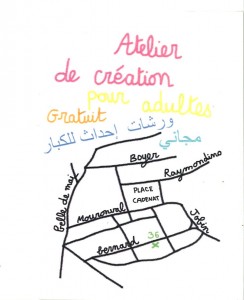 Atelier
de création
pour adultes
Gratuit
ورشات إحداث للكبار
مجاني
Boyer
Raymondino
belle de mai
PLACE
CADENAT
Mouronval
Jobin
bernard
36